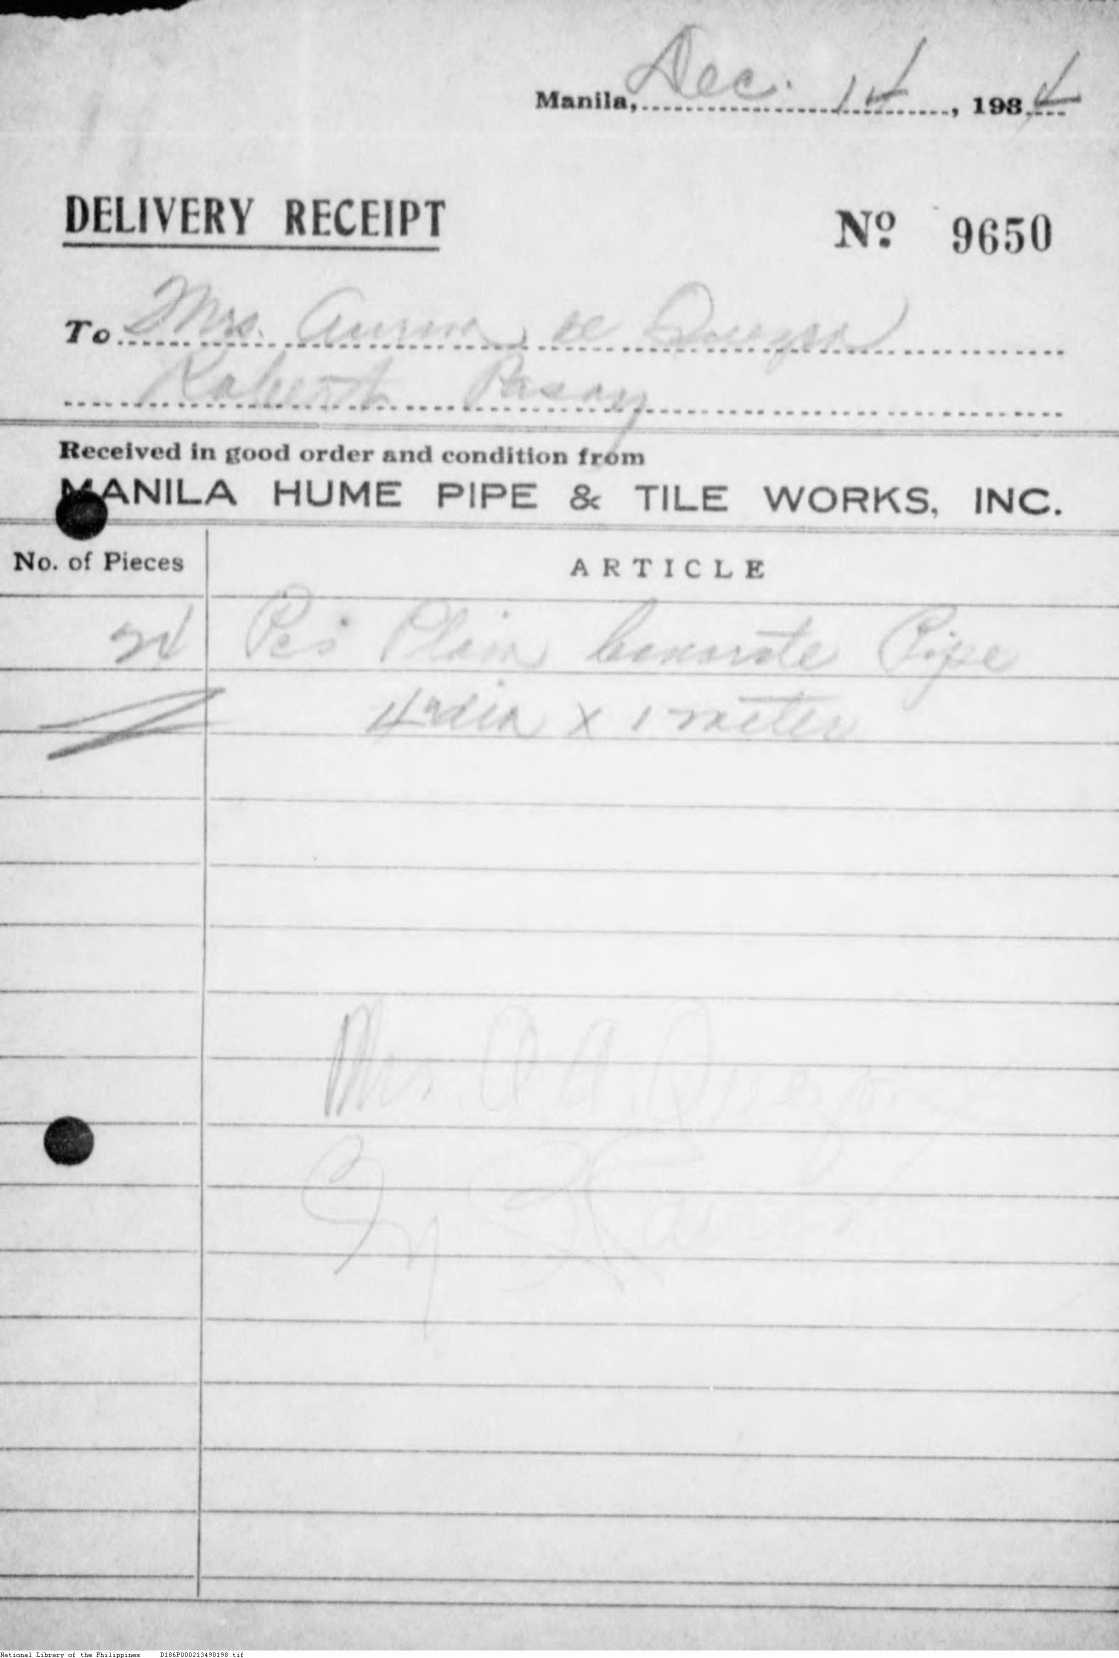 Manila, Dec. 14, 1934
DELIVERY RECEIPT Nº 9650
To Mrs. Aurora de Quezon
Roberts Pasay
Received in good order and condition from
MANILA HUME PIPE & TILE WORKS, INC.
No. of Pieces ARTICLE
24 Pcs Plain Concrete Pipe
4" dia x 1 meter
Mrs. A. A. Quezon
By
National Library of the Philippines D186P000213498198.tif